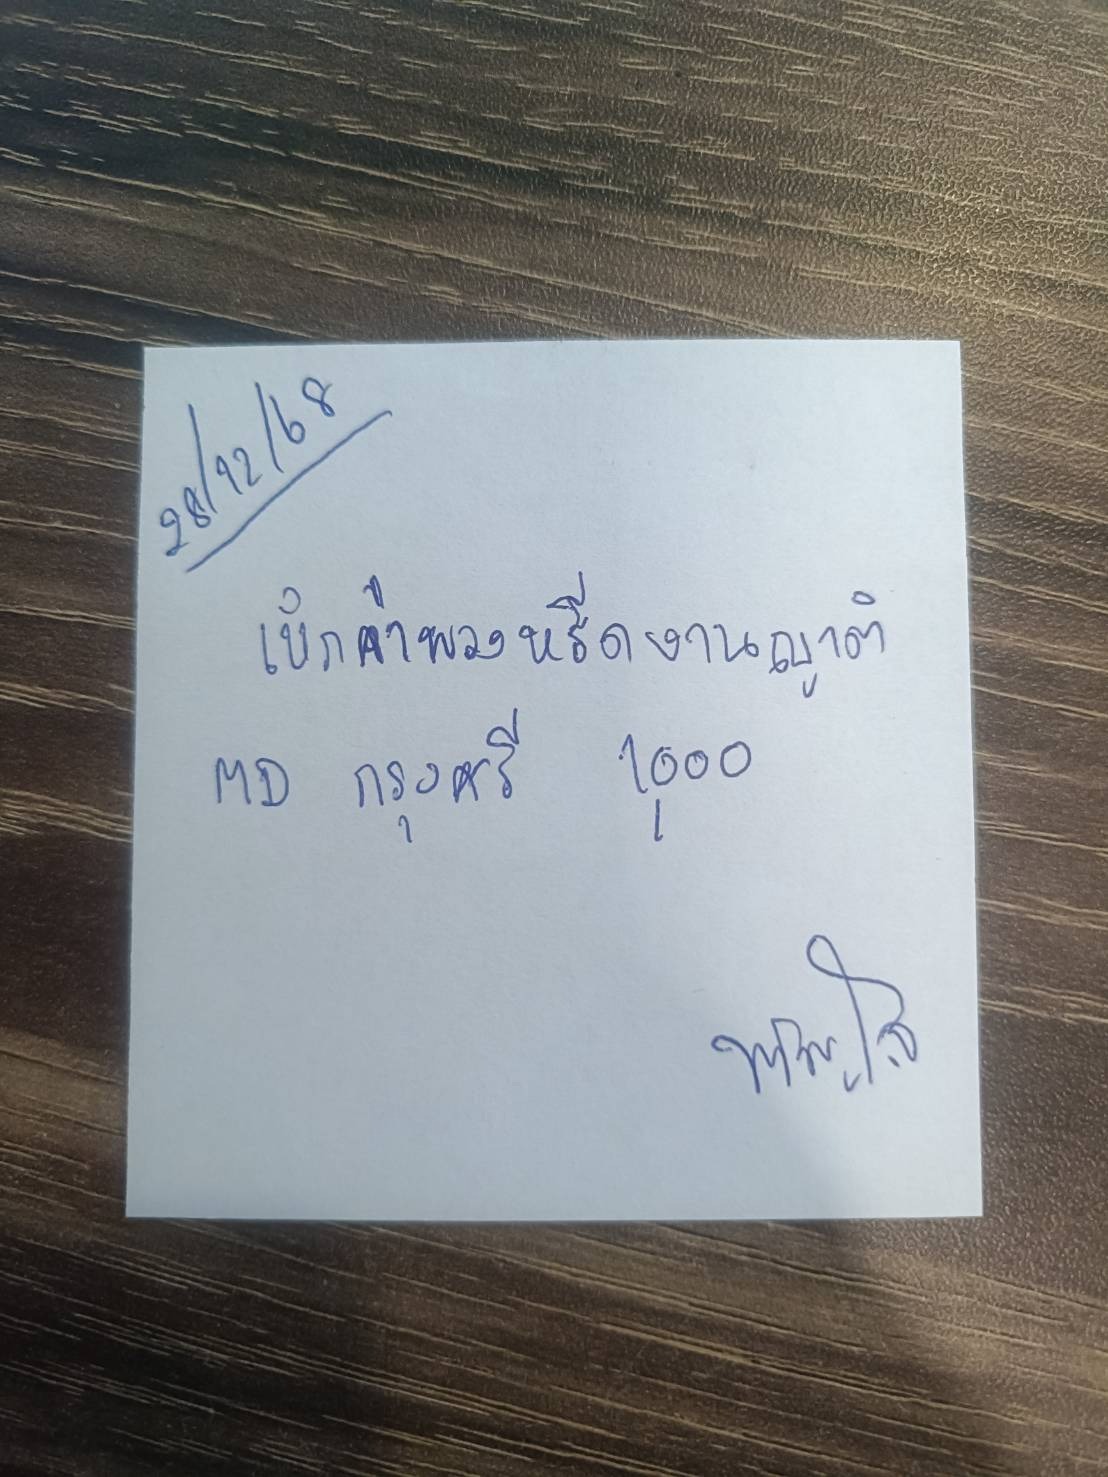 28/12/68
เบิกค่าพวงหรีดงานญาติ
MD กรุงศรี 1,000